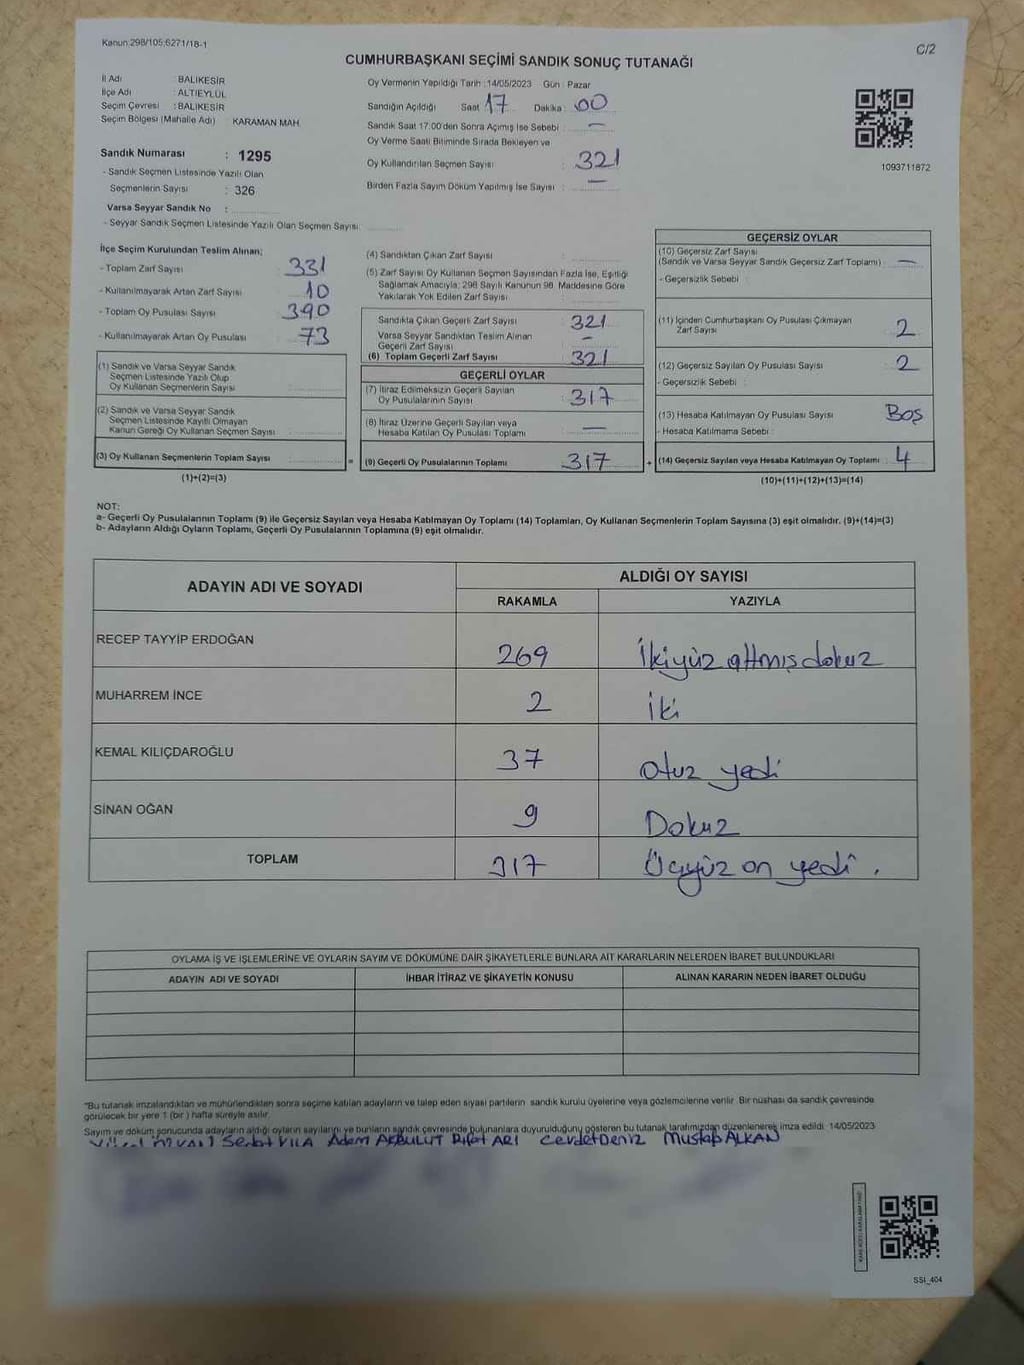 Kanun:298/105;6271/18-1
C/2
CUMHURBAŞKANI SEÇİMİ SANDIK SONUÇ TUTANAĞI
İl Adı : BALIKESİR
İlçe Adı : ALTIEYLÜL
Seçim Çevresi : BALIKESİR
Seçim Bölgesi (Mahalle Adı) : KARAMAN MAH
Sandık Numarası : 1295
- Sandık Seçmen Listesinde Yazılı Olan
Seçmenlerin Sayısı : 326
Varsa Seyyar Sandık No :
- Seyyar Sandık Seçmen Listesinde Yazılı Olan Seçmen Sayısı:
Oy Vermenin Yapıldığı Tarih : 14/05/2023 Gün : Pazar
Sandığın Açıldığı Saat 17 Dakika : 00
Sandık Saat 17:00'den Sonra Açımış İse Sebebi : —
Oy Verme Saati Bitiminde Sırada Bekleyen ve
Oy Kullandırılan Seçmen Sayısı : 321
Birden Fazla Sayım Döküm Yapılmış İse Sayısı : —
1093711872
İlçe Seçim Kurulundan Teslim Alınan;
- Toplam Zarf Sayısı 331
- Kullanılmayarak Artan Zarf Sayısı 10
- Toplam Oy Pusulası Sayısı 390
- Kullanılmayarak Artan Oy Pusulası 73
(1) Sandık ve Varsa Seyyar Sandık
Seçmen Listesinde Yazılı Olup
Oy Kullanan Seçmenlerin Sayısı :
(2) Sandık ve Varsa Seyyar Sandık
Seçmen Listesinde Kayıtlı Olmayan
Kanun Gereği Oy Kullanan Seçmen Sayısı :
(3) Oy Kullanan Seçmenlerin Toplam Sayısı :
(1)+(2)=(3)
(4) Sandıktan Çıkan Zarf Sayısı :
(5) Zarf Sayısı Oy Kullanan Seçmen Sayısından Fazla İse, Eşitliği
Sağlamak Amacıyla; 298 Sayılı Kanunun 98. Maddesine Göre
Yakılarak Yok Edilen Zarf Sayısı :
Sandıkta Çıkan Geçerli Zarf Sayısı : 321
Varsa Seyyar Sandıktan Teslim Alınan
Geçerli Zarf Sayısı : —
(6) Toplam Geçerli Zarf Sayısı : 321
GEÇERLİ OYLAR
(7) İtiraz Edilmeksizin Geçerli Sayılan
Oy Pusulalarının Sayısı : 317
(8) İtiraz Üzerine Geçerli Sayılan veya
Hesaba Katılan Oy Pusulası Toplamı : —
= (9) Geçerli Oy Pusulalarının Toplamı : 317 +
GEÇERSİZ OYLAR
(10) Geçersiz Zarf Sayısı
(Sandık ve Varsa Seyyar Sandık Geçersiz Zarf Toplamı) : —
- Geçersizlik Sebebi :
(11) İçinden Cumhurbaşkanı Oy Pusulası Çıkmayan
Zarf Sayısı : 2
(12) Geçersiz Sayılan Oy Pusulası Sayısı : 2
- Geçersizlik Sebebi :
(13) Hesaba Katılmayan Oy Pusulası Sayısı : Boş
- Hesaba Katılmama Sebebi :
(14) Geçersiz Sayılan veya Hesaba Katılmayan Oy Toplamı : 4
(10)+(11)+(12)+(13)=(14)
NOT:
a- Geçerli Oy Pusulalarının Toplamı (9) ile Geçersiz Sayılan veya Hesaba Katılmayan Oy Toplamı (14) Toplamları, Oy Kullanan Seçmenlerin Toplam Sayısına (3) eşit olmalıdır. (9)+(14)=(3)
b- Adayların Aldığı Oyların Toplamı, Geçerli Oy Pusulalarının Toplamına (9) eşit olmalıdır.
ADAYIN ADI VE SOYADI
ALDIĞI OY SAYISI
RAKAMLA YAZIYLA
RECEP TAYYİP ERDOĞAN 269 İkiyüz altmış dokuz
MUHARREM İNCE 2 iki
KEMAL KILIÇDAROĞLU 37 otuz yedi
SİNAN OĞAN 9 Dokuz
TOPLAM 317 Üçyüz on yedi .
OYLAMA İŞ VE İŞLEMLERİNE VE OYLARIN SAYIM VE DÖKÜMÜNE DAİR ŞİKAYETLERLE BUNLARA AİT KARARLARIN NELERDEN İBARET BULUNDUKLARI
ADAYIN ADI VE SOYADI İHBAR İTİRAZ VE ŞİKAYETİN KONUSU ALINAN KARARIN NEDEN İBARET OLDUĞU
"Bu tutanak imzalandıktan ve mühürlendikten sonra seçime katılan adayların ve talep eden siyasi partilerin sandık kurulu üyelerine veya gözlemcilerine verilir. Bir nüshası da sandık çevresinde
görülecek bir yere 1 (bir) hafta süreyle asılır.
Sayım ve döküm sonucunda adayların aldığı oyların sayılarını ve bunların sandık çevresinde bulunanlara duyurulduğunu gösteren bu tutanak tarafımızdan düzenlenerek imza edildi. 14/05/2023
Sedat VILA Adem AKBULUT Rifat ARI Cevdet Deniz Mustafa ALKAN
SSI_404